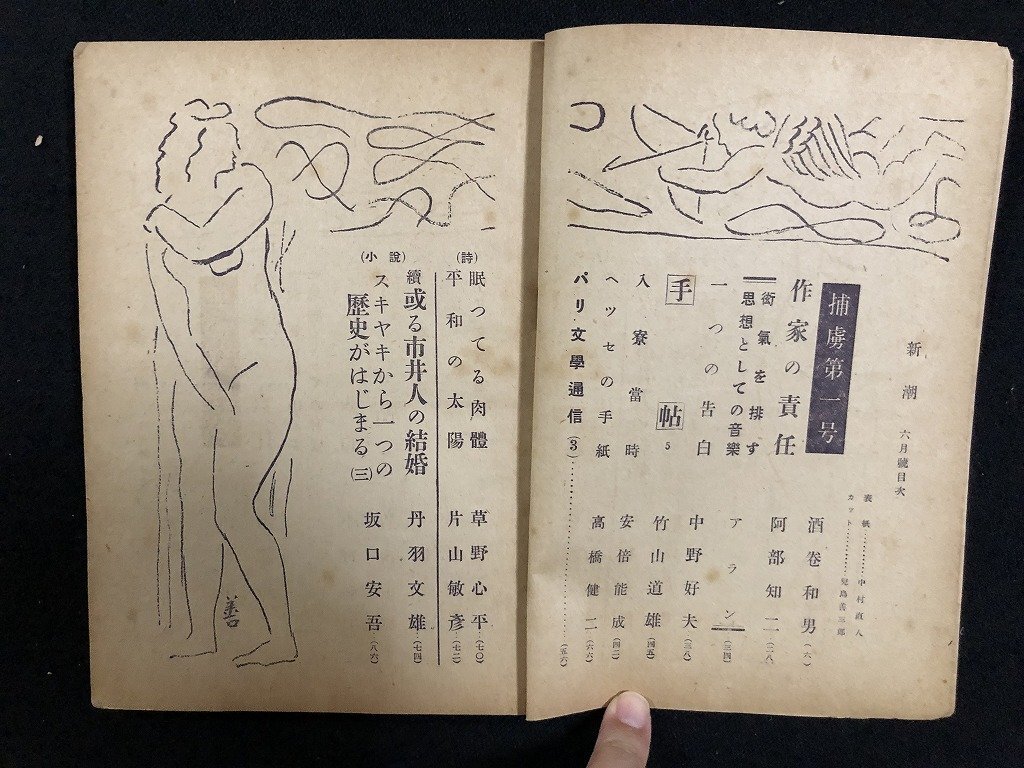 新潮 六月號目次
表紙…………中村直人
カット…………兒島善三郎
捕虜第一号 酒巻和男(六)
作家の責任 阿部知二(二八)
衒氣を排す
思想としての音樂 アラン(三四)
一つの告白 中野好夫(三八)
手帖5
入寮當時 竹山道雄(四五)
ヘッセの手紙 安倍能成(四二)
高橋健二(六六)
パリ文學通信(3)…………(五六)
(詩)
眠つてる肉體 草野心平(七〇)
平和の太陽 片山敏彦(七二)
(小說)
續或る市井人の結婚 丹羽文雄(七四)
スキヤキから一つの
歷史がはじまる(三) 坂口安吾(八六)
善